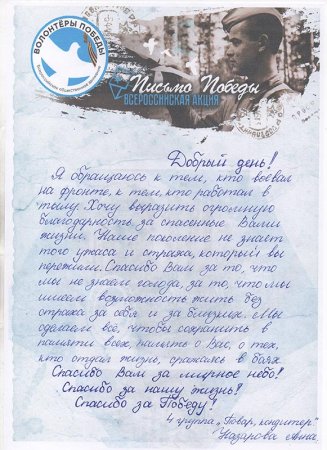 ВОЛОНТЁРЫ ПОБЕДЫ
Всероссийское общественное движение
Письмо Победы
ВСЕРОССИЙСКАЯ АКЦИЯ
Добрый день!
Я обращаюсь к тем, кто воевал
на фронте, к тем, кто работал в
тылу. Хочу выразить огромную
благодарность за спасенные Вами
жизни. Наше поколение не знает
того ужаса и страха, который вы
пережили. Спасибо Вам за то, что
мы не знаем голода, за то, что мы
имеем возможность жить без
страха за себя и за близких. Мы
сделаем всё, чтобы сохранить в
памяти всех, память о Вас, о тех,
кто отдал жизнь, сражаясь в боях
Спасибо Вам за мирное небо!
Спасибо за нашу жизнь!
Спасибо за Победу!
4 группа „Повар, кондитер"
Назарова Анна